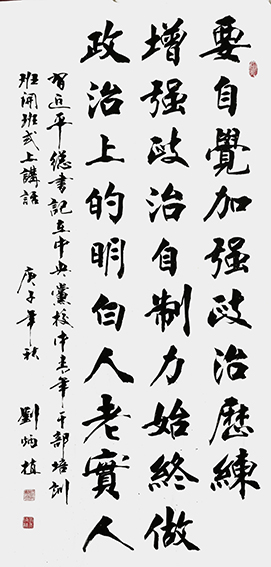 要自覺加强政治歷練
增强政治自制力始終做
政治上的明白人老實人
習近平總書記在中央黨校中青年干部培訓
班開班式上講話
庚子年秋
劉炳植